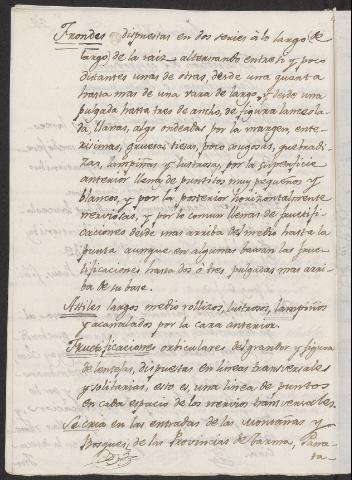 Frondes dispuestas en dos series à lo largo (de
largo) de la raiz alternando entre si y poco
distantes unas de otras, desde una quarta
hasta mas de una vara de largo, y desde una
pulgada hasta tres de ancho, de figura lanceola-
da, llanas, algo ondeadas por la margen, ente-
risimas, gruesas, tiesas, poco jugosas, quebradi-
zas, lampiñas y lustrosas, por la superficie
anterior llenas de puntitos muy pequeños y
blancos, y por la posterior horizontalmente
nerviosas, y por lo comun llenas de fructifi-
caciones desde mas arriba del medio hasta la
punta aunque en algunas baxan las fruc-
tificaciones hasta dos ó tres pulgadas mas arri-
ba de su base.
Astiles largos medio rollizos, lustrosos, lampiños
y acanalados por la cara anterior.
Fructificaciones orbiculares del grandor y figura
de lentejas, dispuestas en lineas transversales
y solitarias, esto es, una linea de puntos
en cada espacio de los nervios transversales.
Se cria en las entradas de las montañas y
Bosques, de las Provincias de Tarma, Pana-